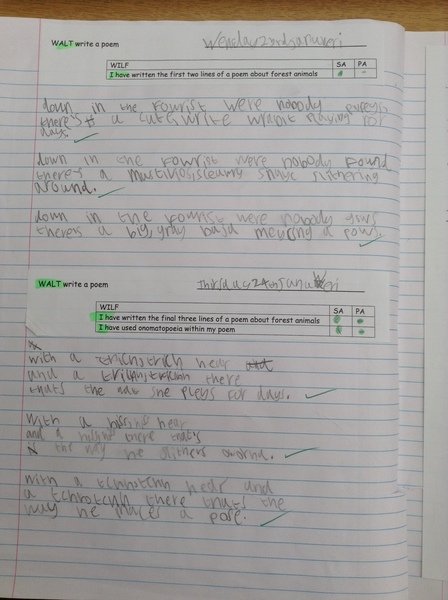 WALT write a poem
Wensday 23rd Januweri
WILF SA PA
I have written the first two lines of a poem about forest animals
down in the fowrist were nobody
there's a cute, write playing for
days.
down in the fowrist were nobody found
there's a slithering
around.
down in the fowrist were nobody gows
theres a big gray meucing a pows.
WALT write a poem
Thirsday 24th Januweri
WILF SA PA
I have written the final three lines of a poem about forest animals
I have used onomatopoeia within my poem
with a hear
and a there
thats the she pleys for days.
With a hissing hear
and a there that's
the way he slithers awornd.
with a tchnotchn hear and
a tchnotchn there thats the
way he maces a pose.